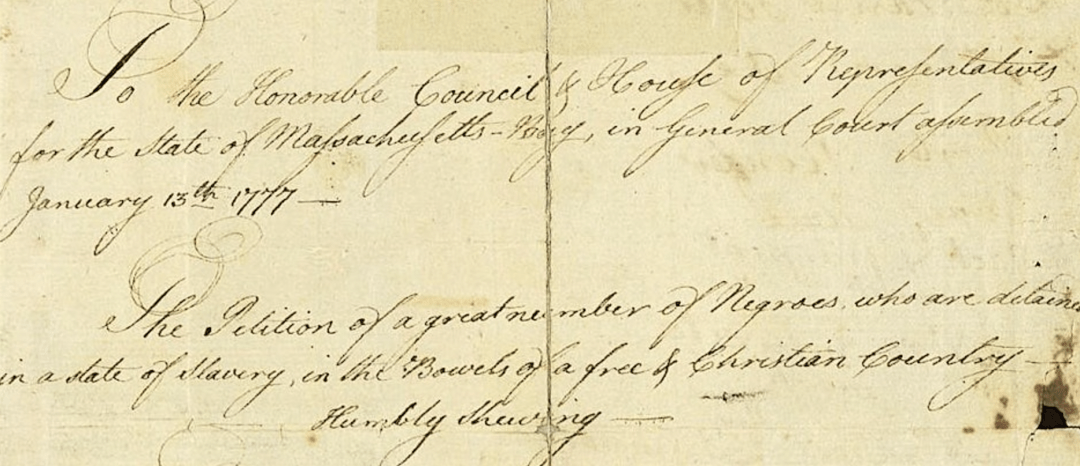 To the Honorable Council & House of Representatives
for the State of Massachusetts-Bay, in General Court assembled
January 13th 1777 —
The Petition of a great number of Negroes who are detained
in a state of Slavery, in the Bowels of a free & Christian Country —
Humbly Shewing —